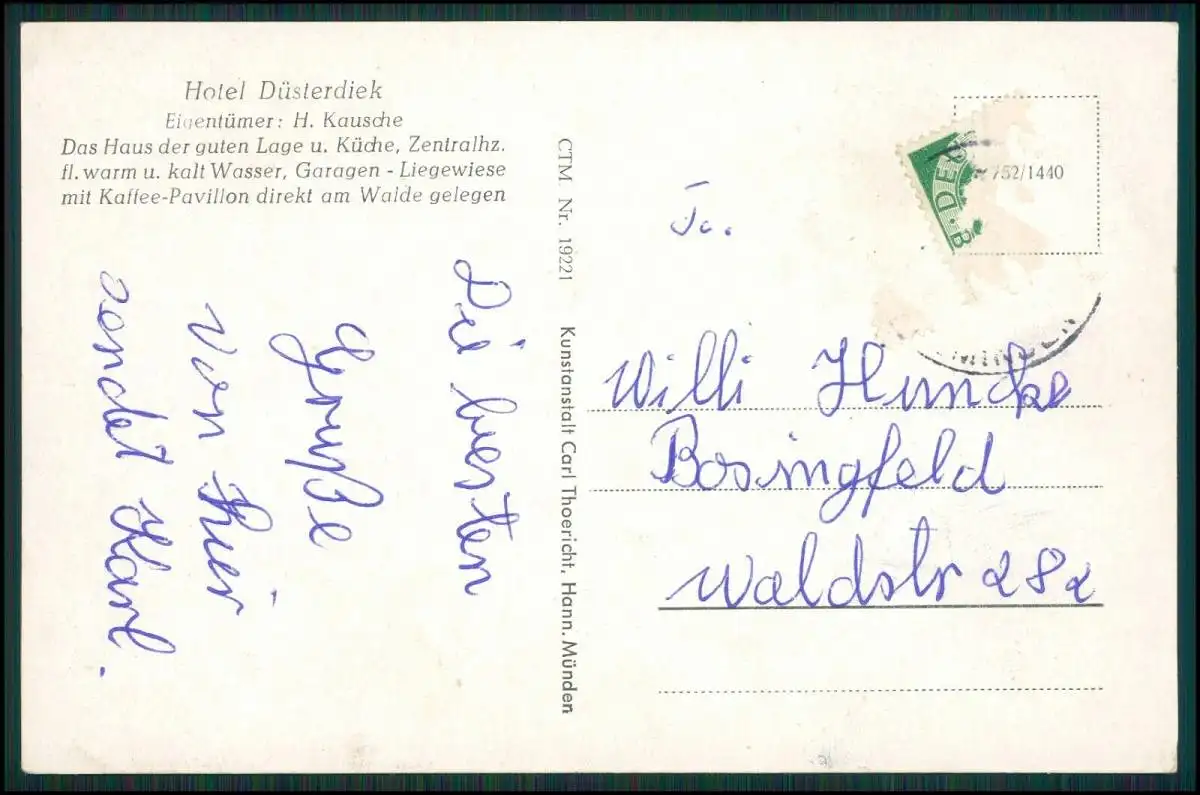 Hotel Düsterdiek
Eigentümer: H. Kausche
Das Haus der guten Lage u. Küche, Zentralhz.
fl. warm u. kalt Wasser, Garagen - Liegewiese
mit Kaffee-Pavillon direkt am Walde gelegen
Die besten
Grüße
von hier
sendet Karl.
CTM. Nr. 19221 Kunstanstalt Carl Thoericht, Hann. Münden
752/1440
Willi Huncke
Bosingfeld
Waldstr 282